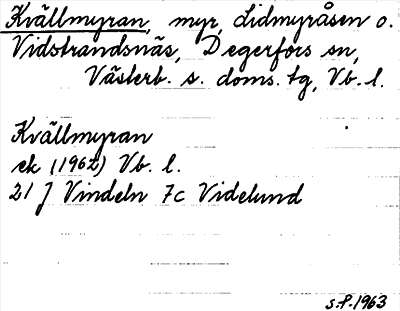 Kvällmyran, myr, Lidmyråsen o.
Vidstrandsnäs, Degerfors sn,
Västerb. s. doms. tg, Vb. l.
Kvällmyran
ek (1962) Vb. l.
21 J Vindeln 7c Videlund
s.f. 1963